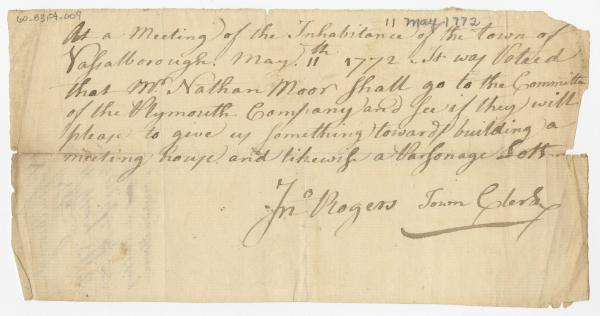 60-53F4-009
11 May 1772
At a Meeting of the Inhabitance of the town of
Vassalborough. May. 11th 1772. It was Voteed
that Mr. Nathan Moor Shall go to the Committe
of the Plymouth Company and See if they will
please to give us something towards building a
meeting house and likewise a Parsonage Lott
Jno Rogers Town Clerk